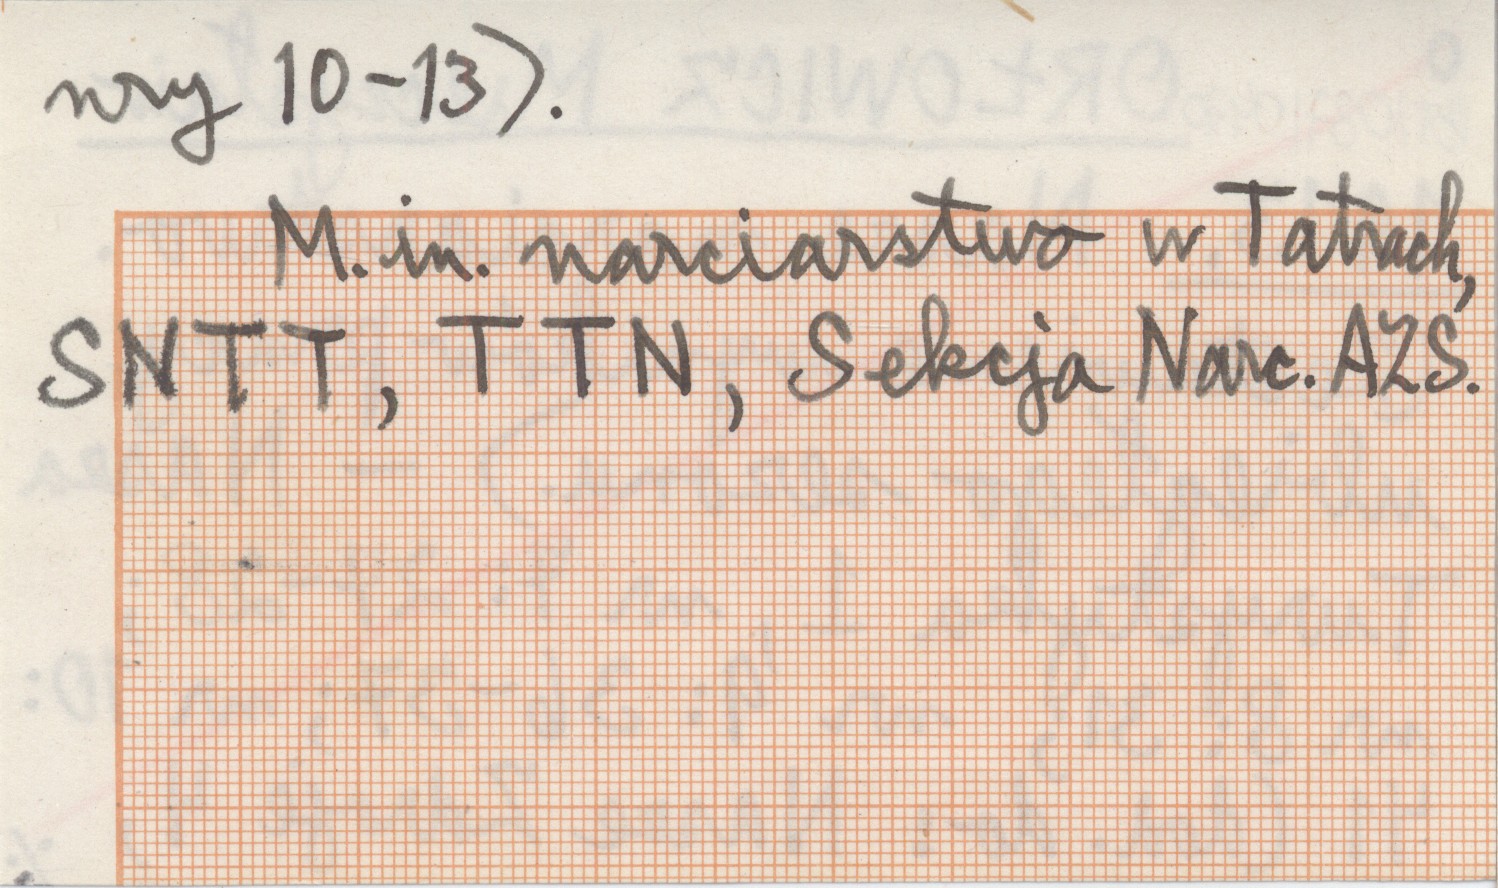 nry 10-13).
M. in. narciarstwo w Tatrach,
SNTT, TTN, Sekcja Narc. AZS.